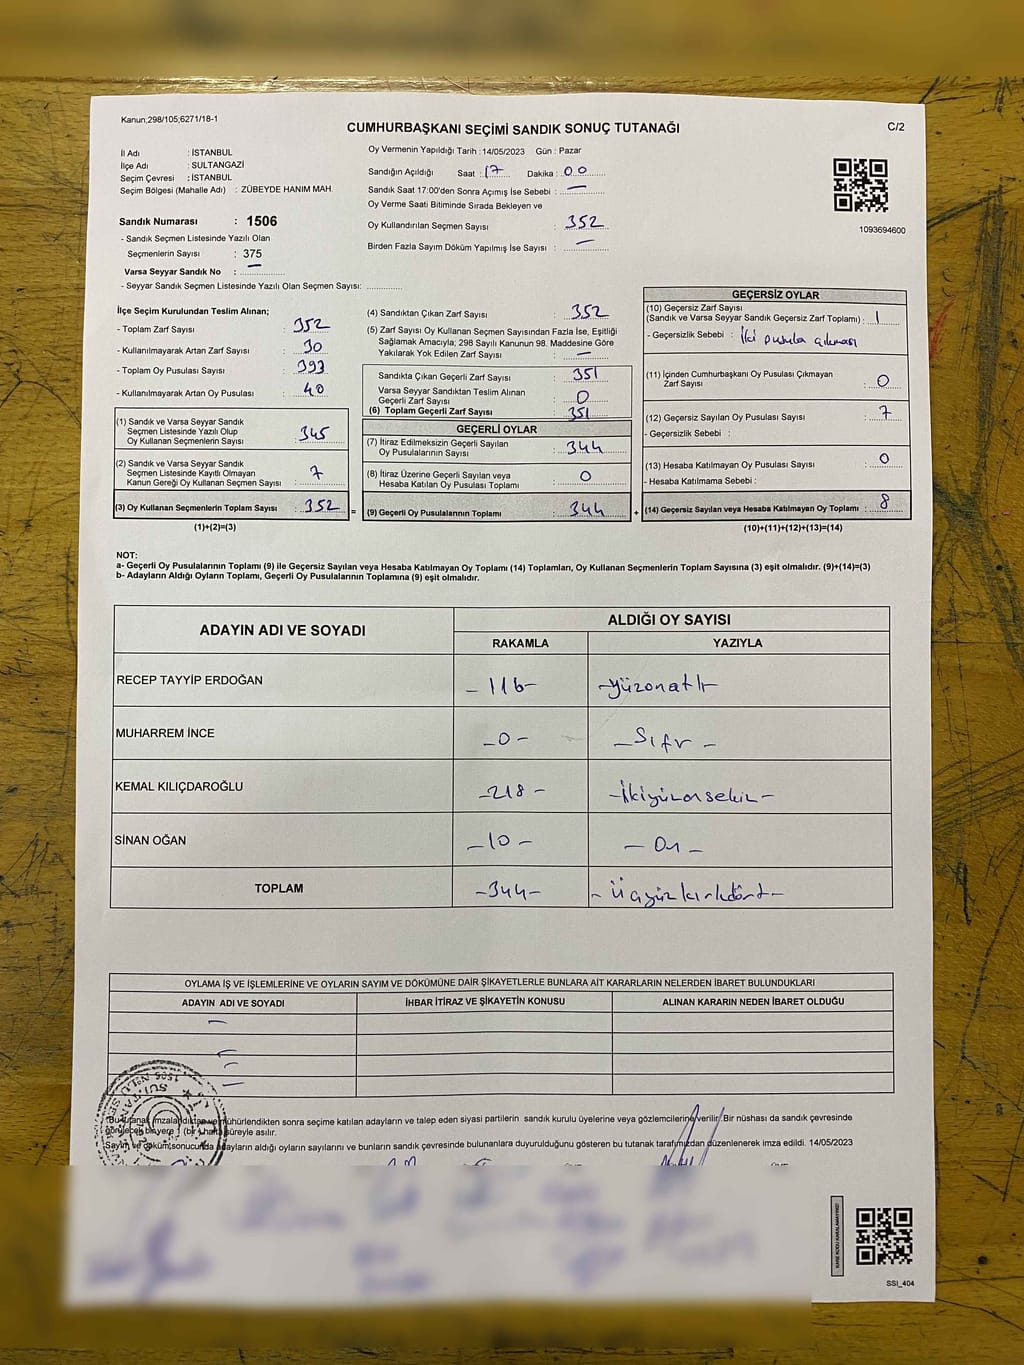 Kanun;298/105;6271/18-1
CUMHURBAŞKANI SEÇİMİ SANDIK SONUÇ TUTANAĞI
C/2
İl Adı : İSTANBUL
İlçe Adı : SULTANGAZİ
Seçim Çevresi : İSTANBUL
Seçim Bölgesi (Mahalle Adı) : ZÜBEYDE HANIM MAH.
Sandık Numarası : 1506
- Sandık Seçmen Listesinde Yazılı Olan
Seçmenlerin Sayısı : 375
Varsa Seyyar Sandık No : —
- Seyyar Sandık Seçmen Listesinde Yazılı Olan Seçmen Sayısı:
Oy Vermenin Yapıldığı Tarih : 14/05/2023 Gün : Pazar
Sandığın Açıldığı Saat : 17 Dakika : 00
Sandık Saat 17:00'den Sonra Açımış İse Sebebi : —
Oy Verme Saati Bitiminde Sırada Bekleyen ve
Oy Kullandırılan Seçmen Sayısı : 352
Birden Fazla Sayım Döküm Yapılmış İse Sayısı : —
1093694600
İlçe Seçim Kurulundan Teslim Alınan;
- Toplam Zarf Sayısı : 352
- Kullanılmayarak Artan Zarf Sayısı : 30
- Toplam Oy Pusulası Sayısı : 393
- Kullanılmayarak Artan Oy Pusulası : 40
(1) Sandık ve Varsa Seyyar Sandık
Seçmen Listesinde Yazılı Olup
Oy Kullanan Seçmenlerin Sayısı : 345
(2) Sandık ve Varsa Seyyar Sandık
Seçmen Listesinde Kayıtlı Olmayan
Kanun Gereği Oy Kullanan Seçmen Sayısı : 7
(3) Oy Kullanan Seçmenlerin Toplam Sayısı : 352
(1)+(2)=(3)
(4) Sandıktan Çıkan Zarf Sayısı : 352
(5) Zarf Sayısı Oy Kullanan Seçmen Sayısından Fazla İse, Eşitliği
Sağlamak Amacıyla; 298 Sayılı Kanunun 98. Maddesine Göre
Yakılarak Yok Edilen Zarf Sayısı : —
Sandıkta Çıkan Geçerli Zarf Sayısı : 351
Varsa Seyyar Sandıktan Teslim Alınan
Geçerli Zarf Sayısı : 0
(6) Toplam Geçerli Zarf Sayısı : 351
GEÇERLİ OYLAR
(7) İtiraz Edilmeksizin Geçerli Sayılan
Oy Pusulalarının Toplamı : 344
(8) İtiraz Üzerine Geçerli Sayılan veya
Hesaba Katılan Oy Pusulası Toplamı : 0
= (9) Geçerli Oy Pusulalarının Toplamı : 344
GEÇERSİZ OYLAR
(10) Geçersiz Zarf Sayısı
(Sandık ve Varsa Seyyar Sandık Geçersiz Zarf Toplamı) : 1
- Geçersizlik Sebebi : İki pusula çıkması
(11) İçinden Cumhurbaşkanı Oy Pusulası Çıkmayan
Zarf Sayısı : 0
(12) Geçersiz Sayılan Oy Pusulası Sayısı : 7
- Geçersizlik Sebebi :
(13) Hesaba Katılmayan Oy Pusulası Sayısı : 0
- Hesaba Katılmama Sebebi :
+ (14) Geçersiz Sayılan veya Hesaba Katılmayan Oy Toplamı : 8
(10)+(11)+(12)+(13)=(14)
NOT:
a- Geçerli Oy Pusulalarının Toplamı (9) ile Geçersiz Sayılan veya Hesaba Katılmayan Oy Toplamı (14) Toplamları, Oy Kullanan Seçmenlerin Toplam Sayısına (3) eşit olmalıdır. (9)+(14)=(3)
b- Adayların Aldığı Oyların Toplamı, Geçerli Oy Pusulalarının Toplamına (9) eşit olmalıdır.
ADAYIN ADI VE SOYADI
ALDIĞI OY SAYISI
RAKAMLA YAZIYLA
RECEP TAYYİP ERDOĞAN -116- -yüzonaltı-
MUHARREM İNCE -0- -Sıfır-
KEMAL KILIÇDAROĞLU -218- -İkiyüzonsekiz-
SİNAN OĞAN -10- -On-
TOPLAM -344- -Üçyüzkırkdört-
OYLAMA İŞ VE İŞLEMLERİNE VE OYLARIN SAYIM VE DÖKÜMÜNE DAİR ŞİKAYETLERLE BUNLARA AİT KARARLARIN NELERDEN İBARET BULUNDUKLARI
ADAYIN ADI VE SOYADI İHBAR İTİRAZ VE ŞİKAYETİN KONUSU ALINAN KARARIN NEDEN İBARET OLDUĞU
—
—
—
—
mühürlendikten sonra seçime katılan adayların ve talep eden siyasi partilerin sandık kurulu üyelerine veya gözlemcilerine verilir. Bir nüshası da sandık çevresinde
görülecek bir yere 1 (bir) hafta süreyle asılır.
Sayım ve döküm sonucunda adayların aldığı oyların sayılarını ve bunların sandık çevresinde bulunanlara duyurulduğunu gösteren bu tutanak tarafımızdan düzenlenerek imza edildi. 14/05/2023
SSİ_404